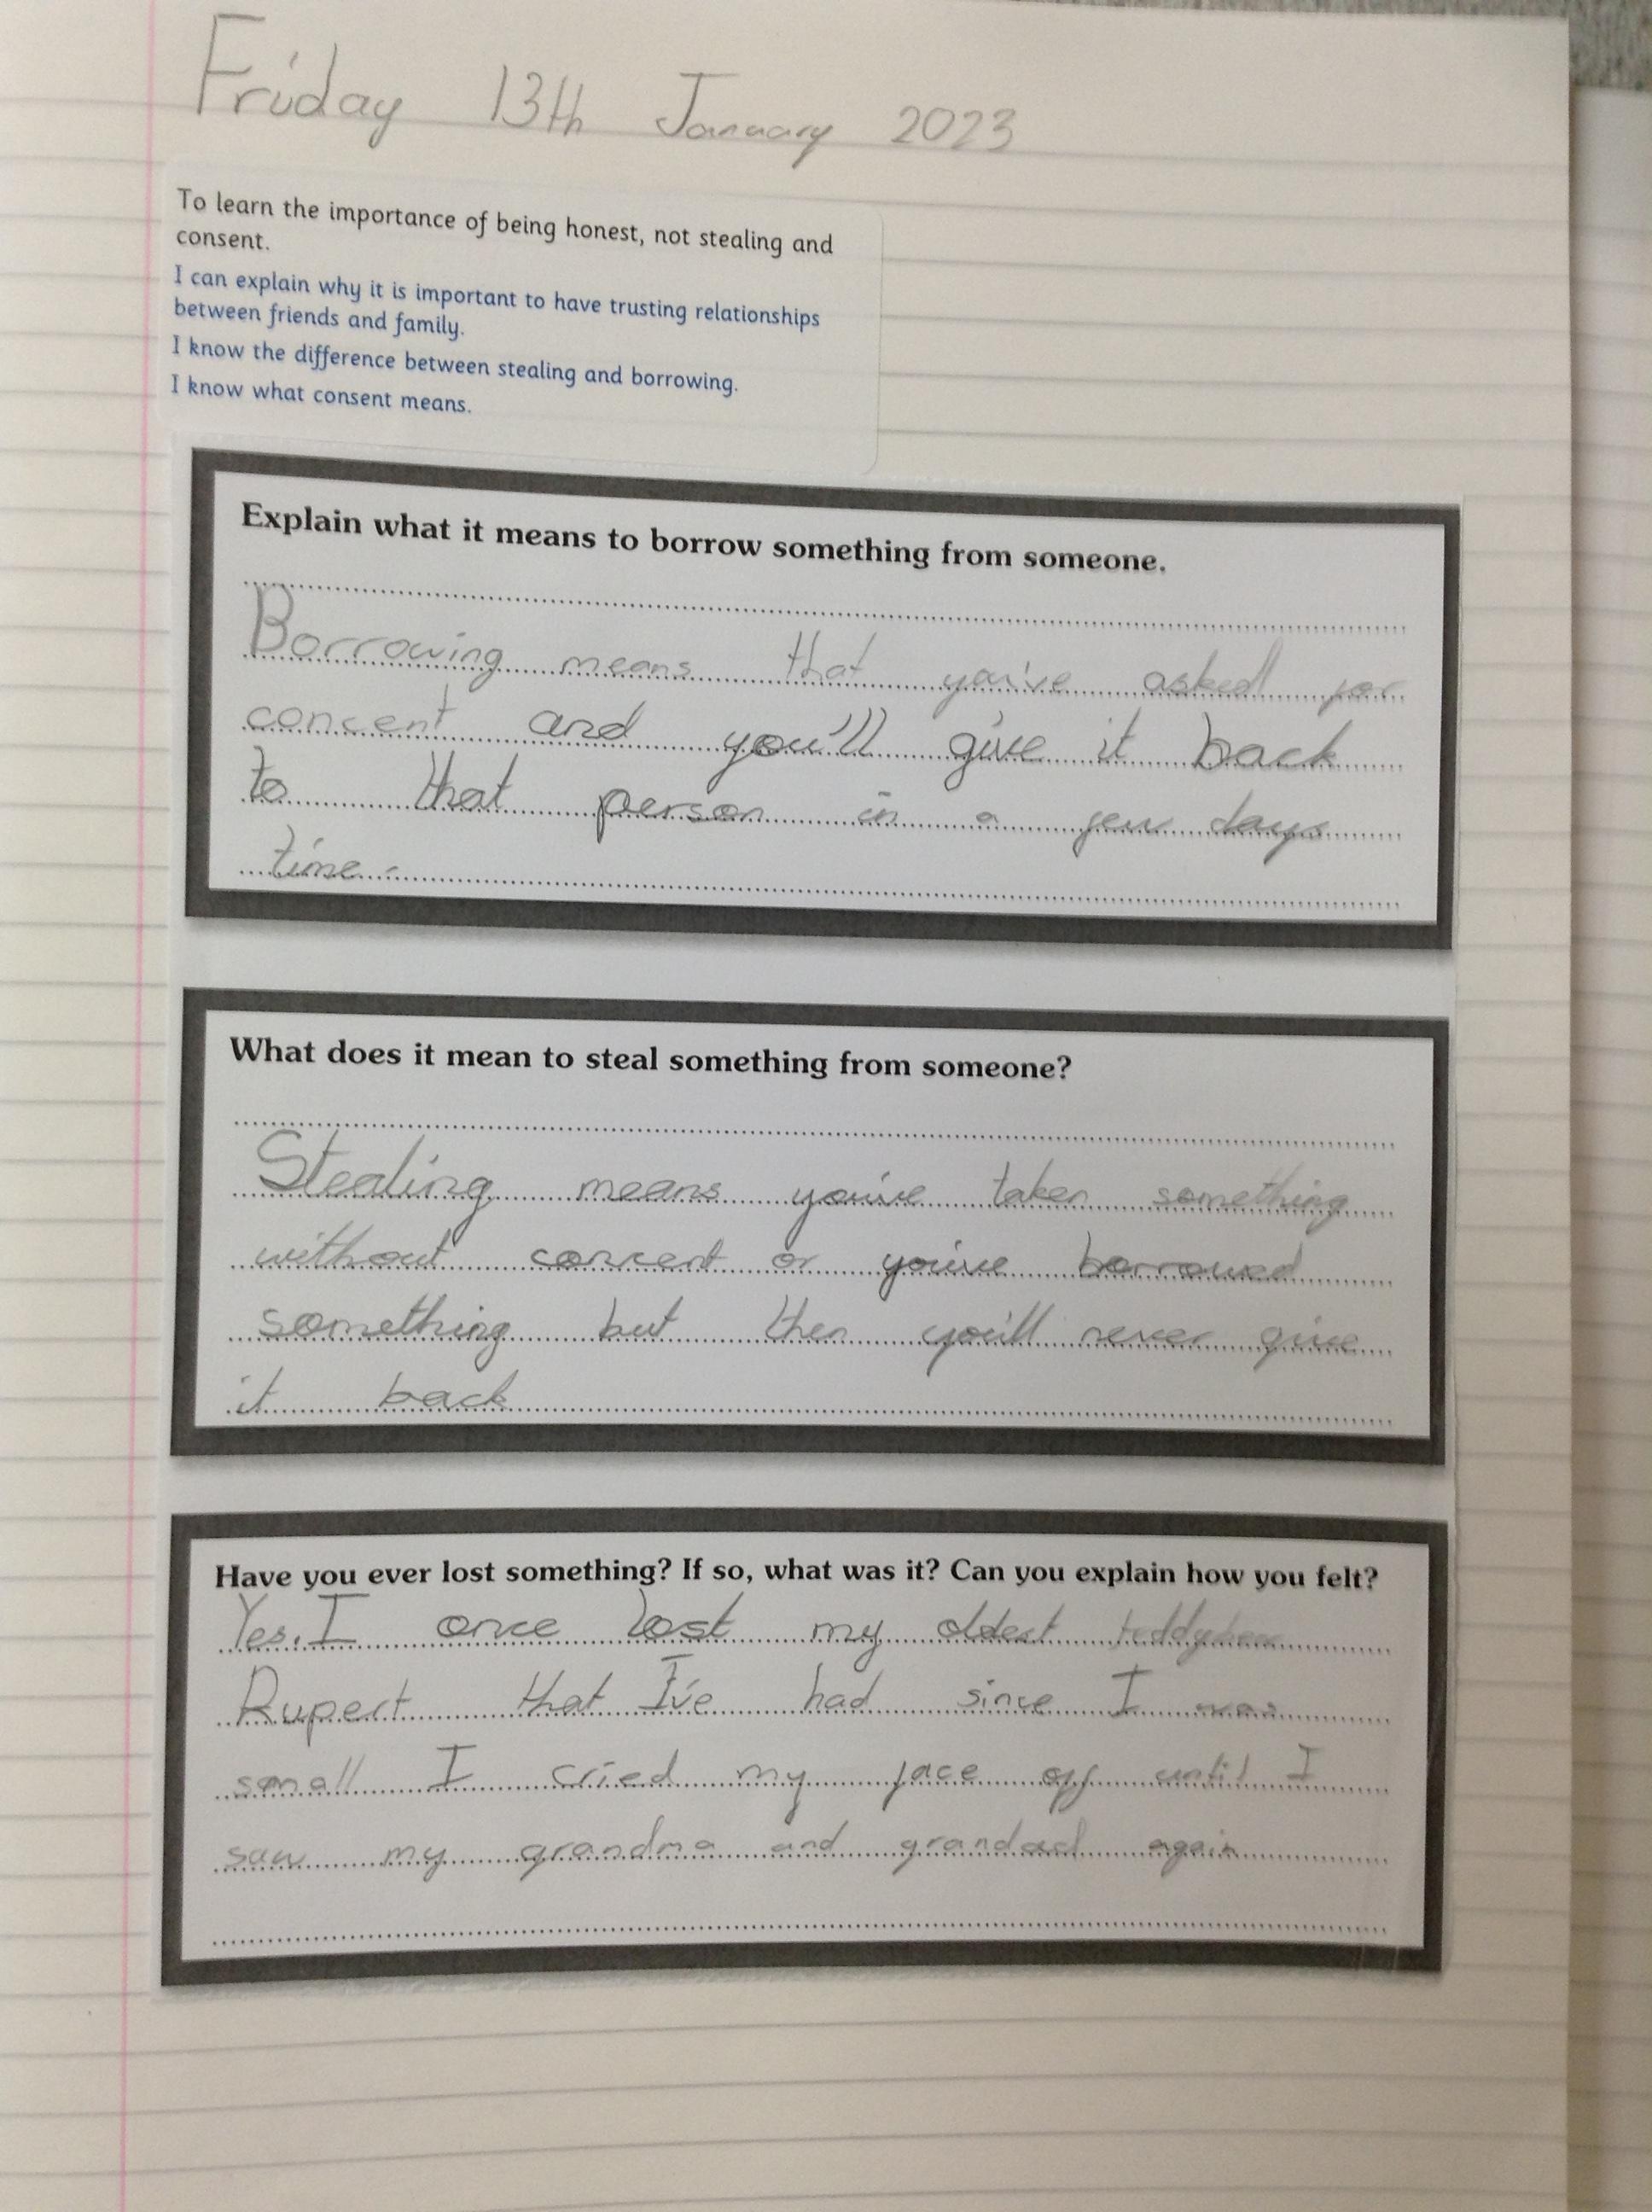 Friday 13th January 2023
To learn the importance of being honest, not stealing and
consent.
I can explain why it is important to have trusting relationships
between friends and family.
I know the difference between stealing and borrowing.
I know what consent means.
Explain what it means to borrow something from someone.
Borrowing means that you've asked for
concent and you'll give it back
to that person in a few days
time.
What does it mean to steal something from someone?
Stealing means you've taken something
without concent or you've borrowed
something but then you'll never give
it back
Have you ever lost something? If so, what was it? Can you explain how you felt?
Yes. I once lost my oldest teddybear
Rupert that I've had since I was
small I cried my face off until I
saw my grandma and grandad again